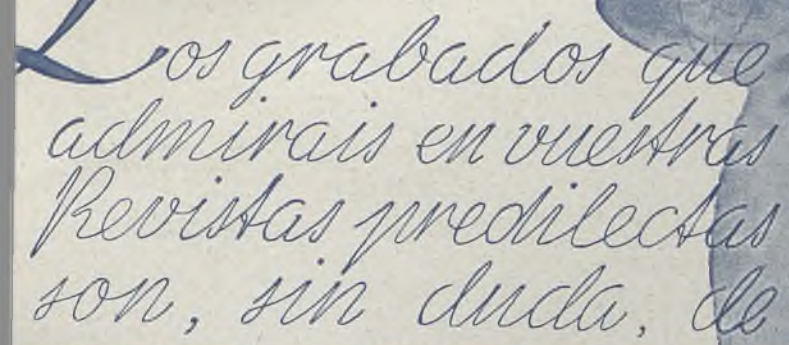 Los grabados que
admirais en vuestras
Revistas predilectas
son, sin duda, de